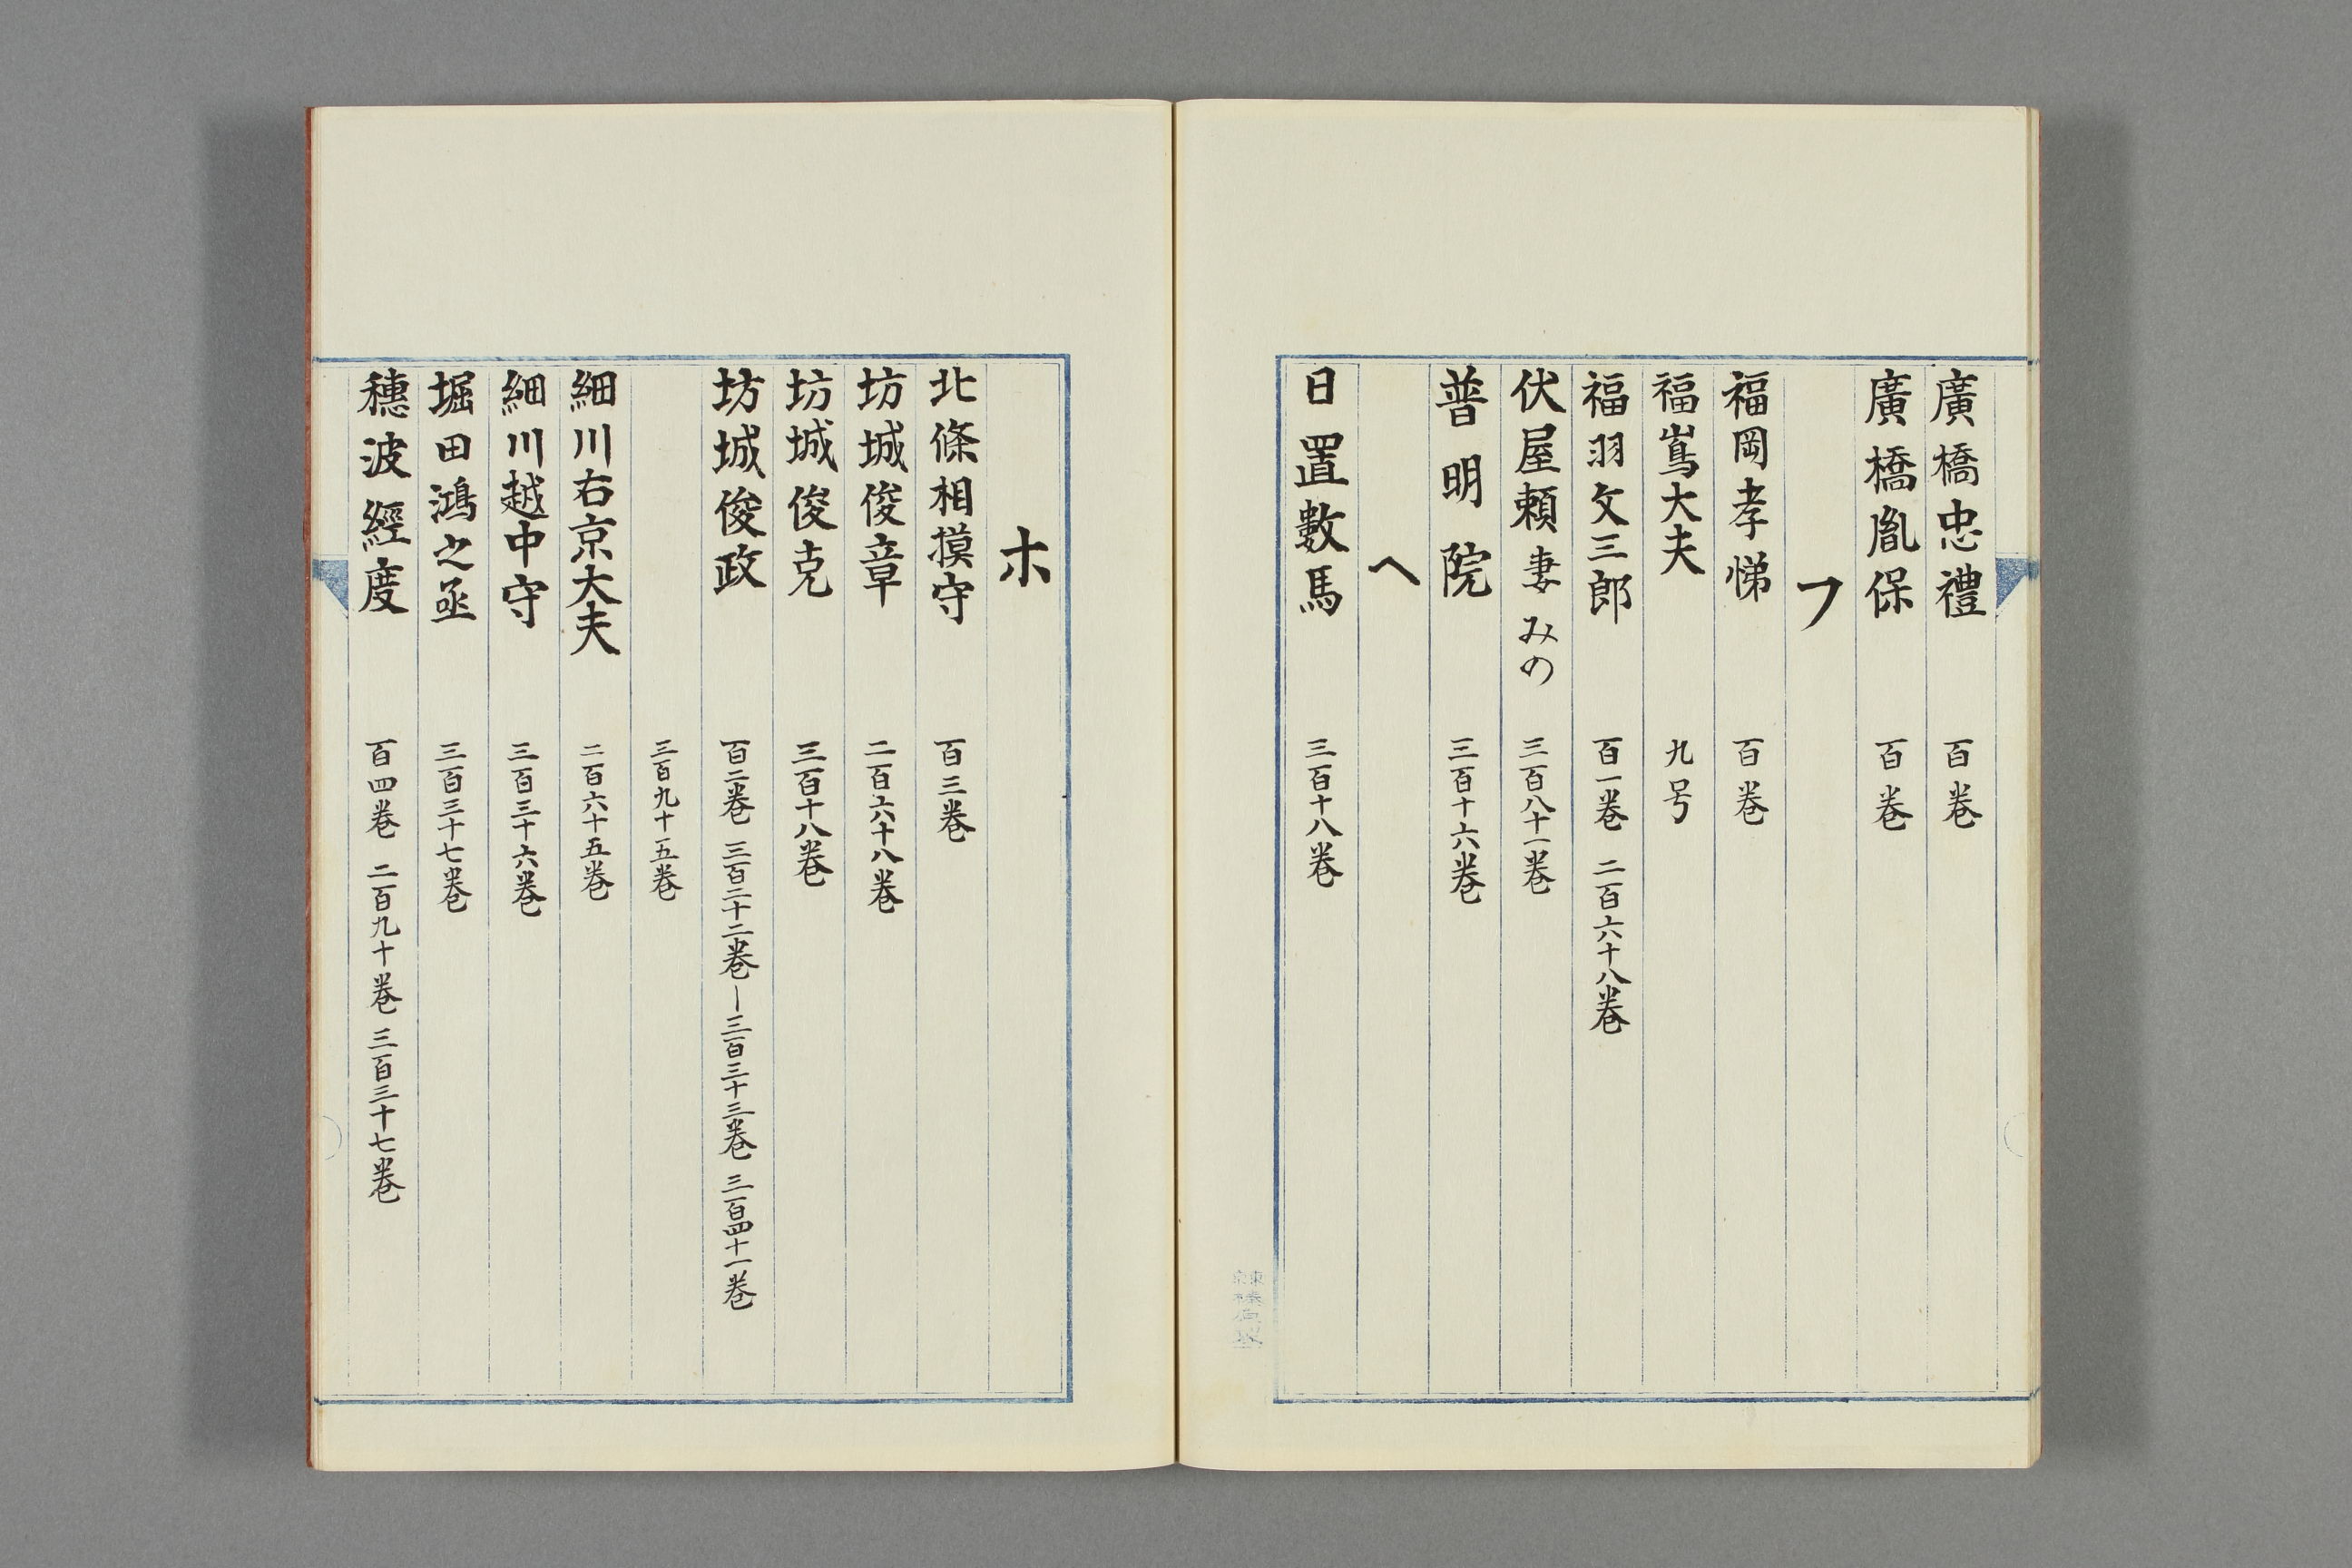 廣橋忠禮 百巻
廣橋胤保 百巻
フ
福岡孝悌 百巻
福嶌大夫 九号
福羽文三郎 百一巻 二百六十八巻
伏屋頼妻みの 三百八十一巻
普明院 三百十六巻
ヘ
日置數馬 三百十八巻
ホ
北條相摸守 百三巻
坊城俊章 二百六十八巻
坊城俊克 三百十八巻
坊城俊政 百二巻 三百二十二巻ー三百三十三巻 三百四十一巻
三百九十五巻
細川右京大夫 二百六十五巻
細川越中守 三百三十六巻
堀田鴻之丞 三百三十七巻
穗波經度 百四巻 二百九十巻 三百三十七巻